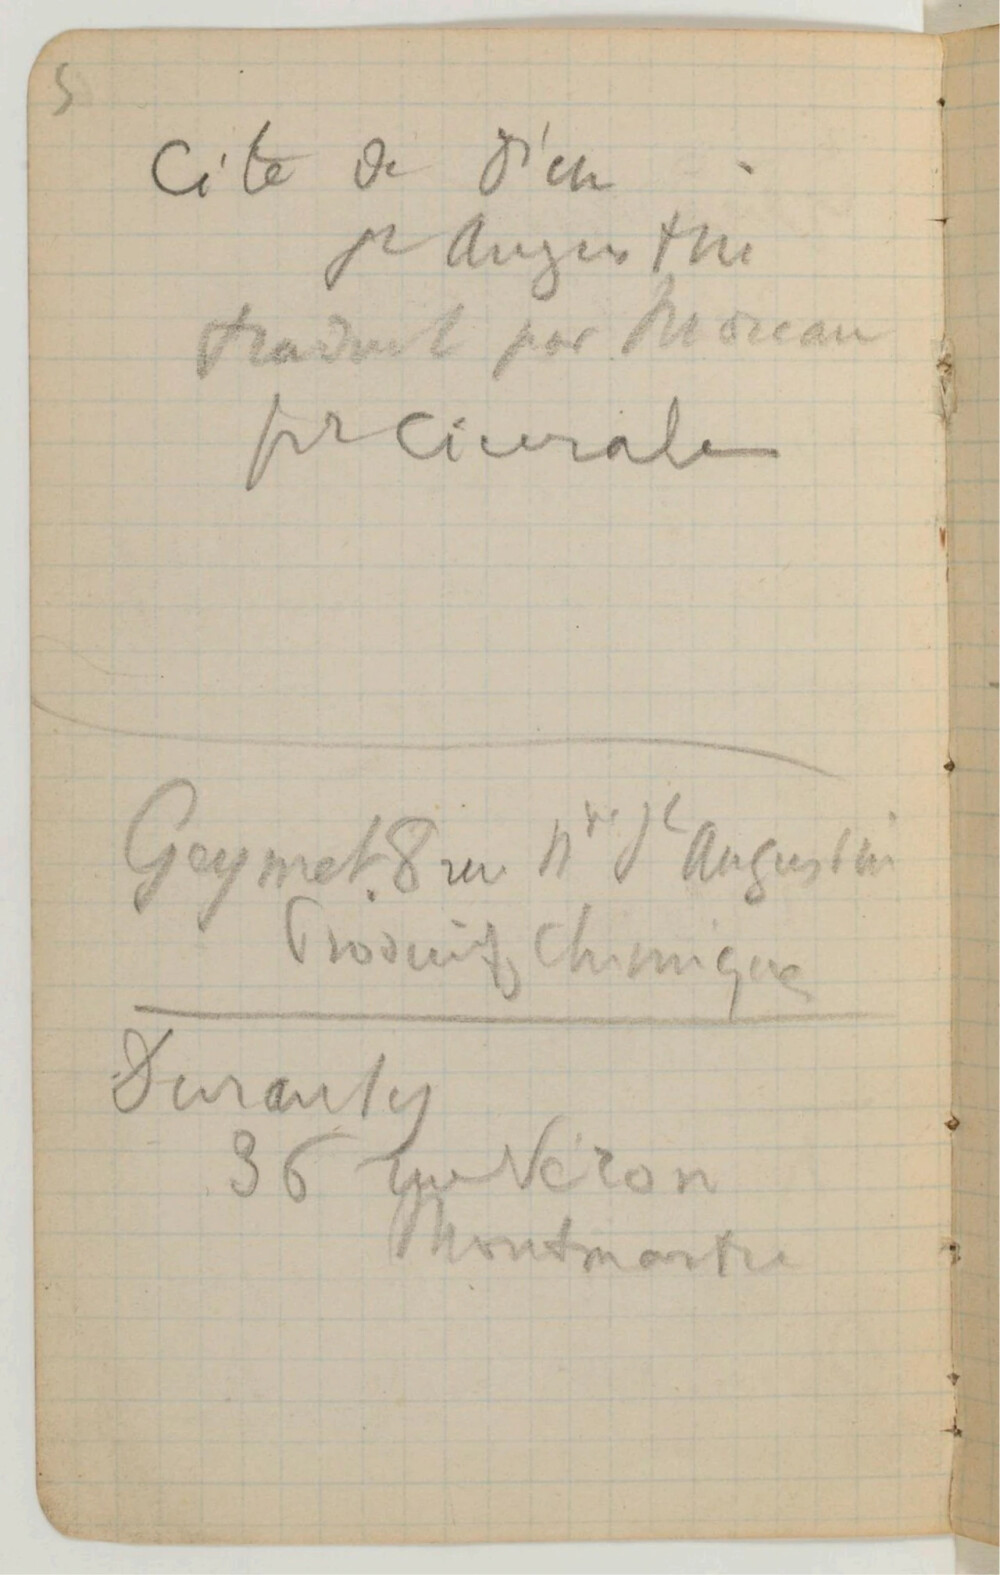 5
Cité de Dieu
pr Augustin
traduit par Moreau
pr
Geymet. 8 rue Nve St Augustin
Produits Chimiques
Duranty
36 rue Véron
Montmartre